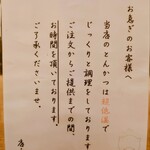 お急ぎのお客様へ
当店のとんかつは超低温で
じっくりと調理をしております。
ご注文からご提供までの間、
お時間を頂いております。
ご了承くださいませ。
店